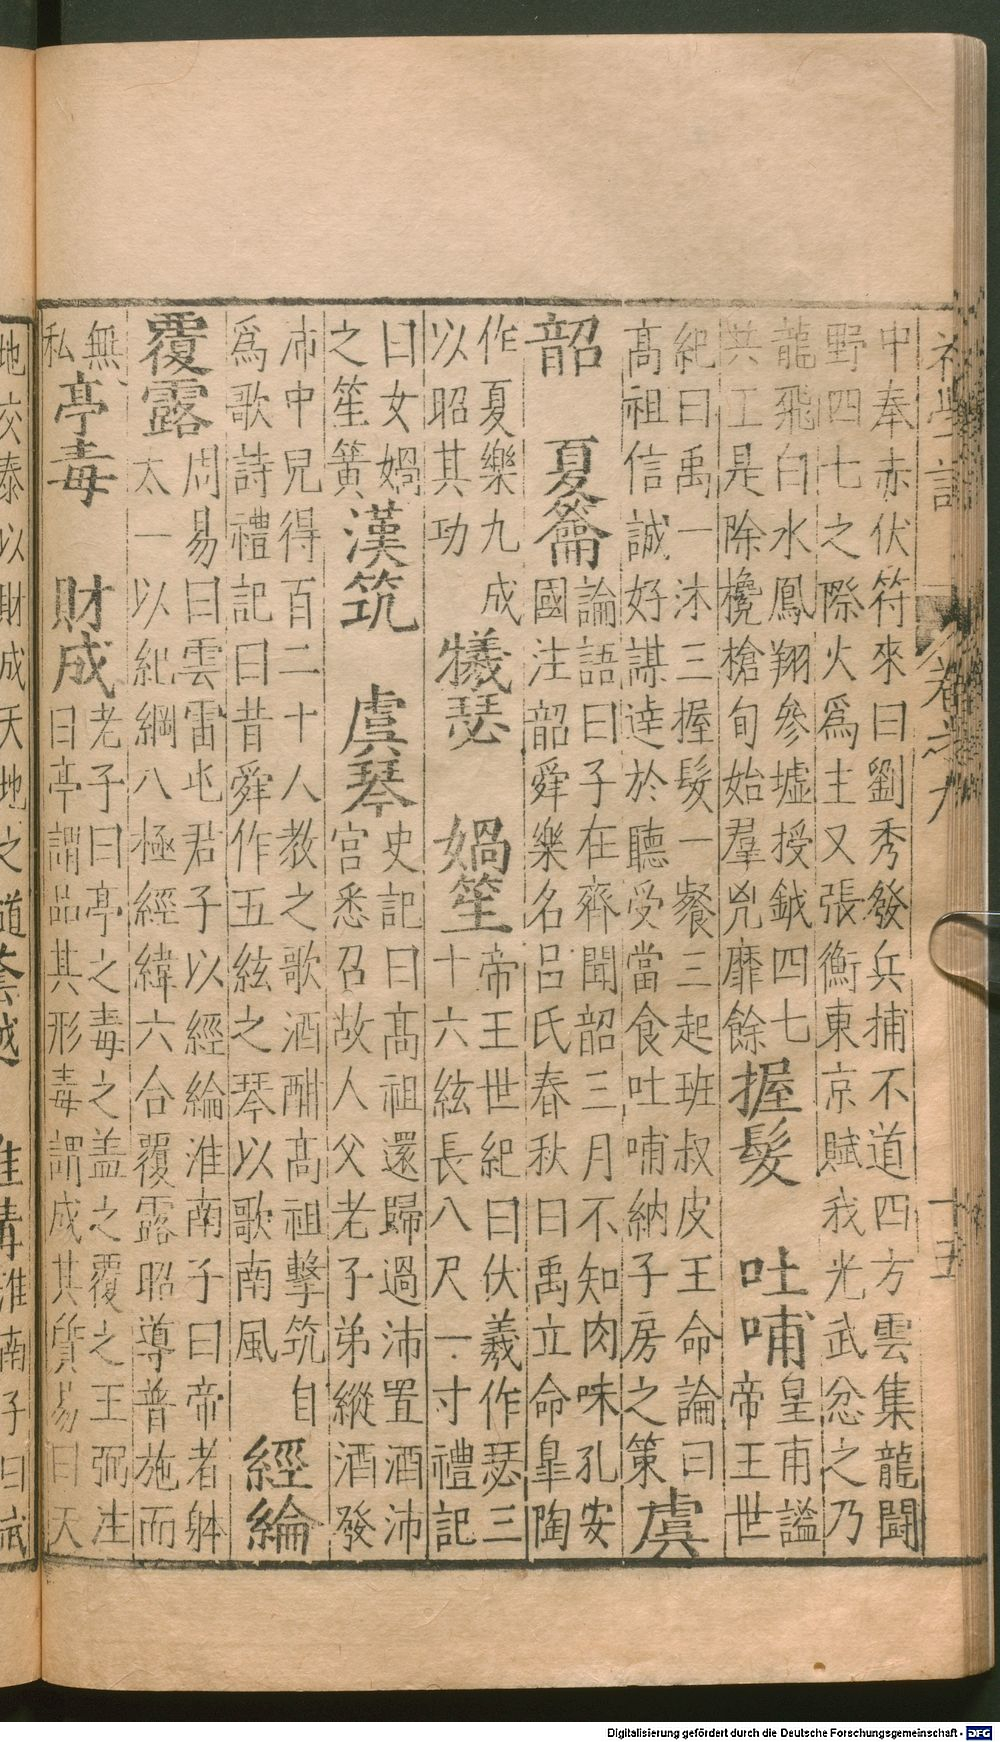 初學記 卷之九 十五
中奉赤伏符來曰劉秀發兵捕不道四方雲集龍鬬
野四七之際火爲主又張衡東京賦我光武忿之乃
龍飛白水鳳翔參墟授鉞四七
共工是除欃槍旬始羣兇靡餘
握髮 吐哺
皇甫謐
帝王世
紀曰禹一沐三握髮一餐三起班叔皮王命論曰
髙祖信誠好謀逹於聽受當食吐哺納子房之策
虞
韶 夏籥
論語曰子在齊聞韶三月不知肉味孔安
國注韶舜樂名吕氏春秋曰禹立命臯陶
作夏樂九成
以昭其功
犧瑟 媧笙
帝王世紀曰伏羲作瑟三
十六絃長八尺一寸禮記
曰女媧
之笙簧
漢筑 虞琴
史記曰髙祖還歸過沛置酒沛
宫悉召故人父老子弟縱酒發
沛中兒得百二十人教之歌酒酣髙祖擊筑自
爲歌詩禮記曰昔舜作五絃之琴以歌南風
經綸
覆露
周易曰雲雷屯君子以經綸淮南子曰帝者躰
太一以紀綱八極經緯六合覆露昭導普施而
無
私
亭毒 財成
老子曰亭之毒之盖之覆之王弼注
曰亭謂品其形毒謂成其質易曰天
地交泰以財成天地之道
淮南子曰
Digitalisierung gefördert durch die Deutsche Forschungsgemeinschaft - DFG